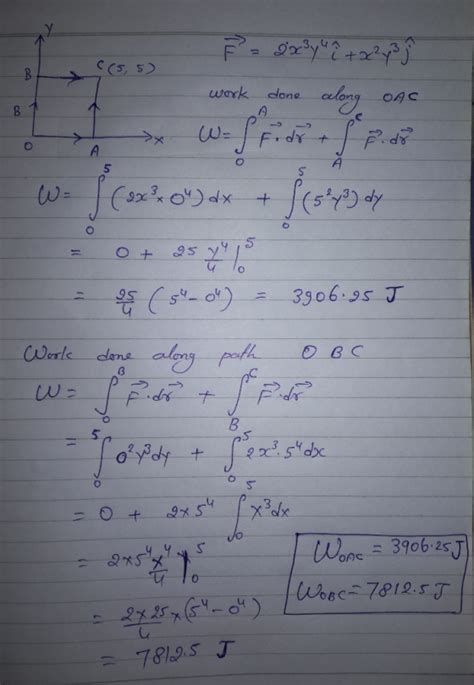 Y
F⃗ = 2x³y⁴ î + x²y³ ĵ
B
C (5, 5)
work done along OAC
B
O
A
x
W = ∫_O^A F⃗·dr⃗ + ∫_A^C F⃗·dr⃗
W = ∫_0^5 (2x³ × 0⁴) dx + ∫_0^5 (5²y³) dy
= 0 + 25 y⁴/4 |_0^5
= 25/4 (5⁴ - 0⁴) = 3906.25 J
Work done along path OBC
W = ∫_O^B F⃗·dr⃗ + ∫_B^C F⃗·dr⃗
= ∫_0^5 0²y³dy + ∫_0^5 2x³·5⁴dx
= 0 + 2x5⁴ ∫_0^5 x³dx
= 2x5⁴ x⁴/4 |_0^5
= 2x25/4 x (5⁴ - 0⁴)
= 7812.5 J
W_OAC = 3906.25J
W_OBC = 7812.5 J